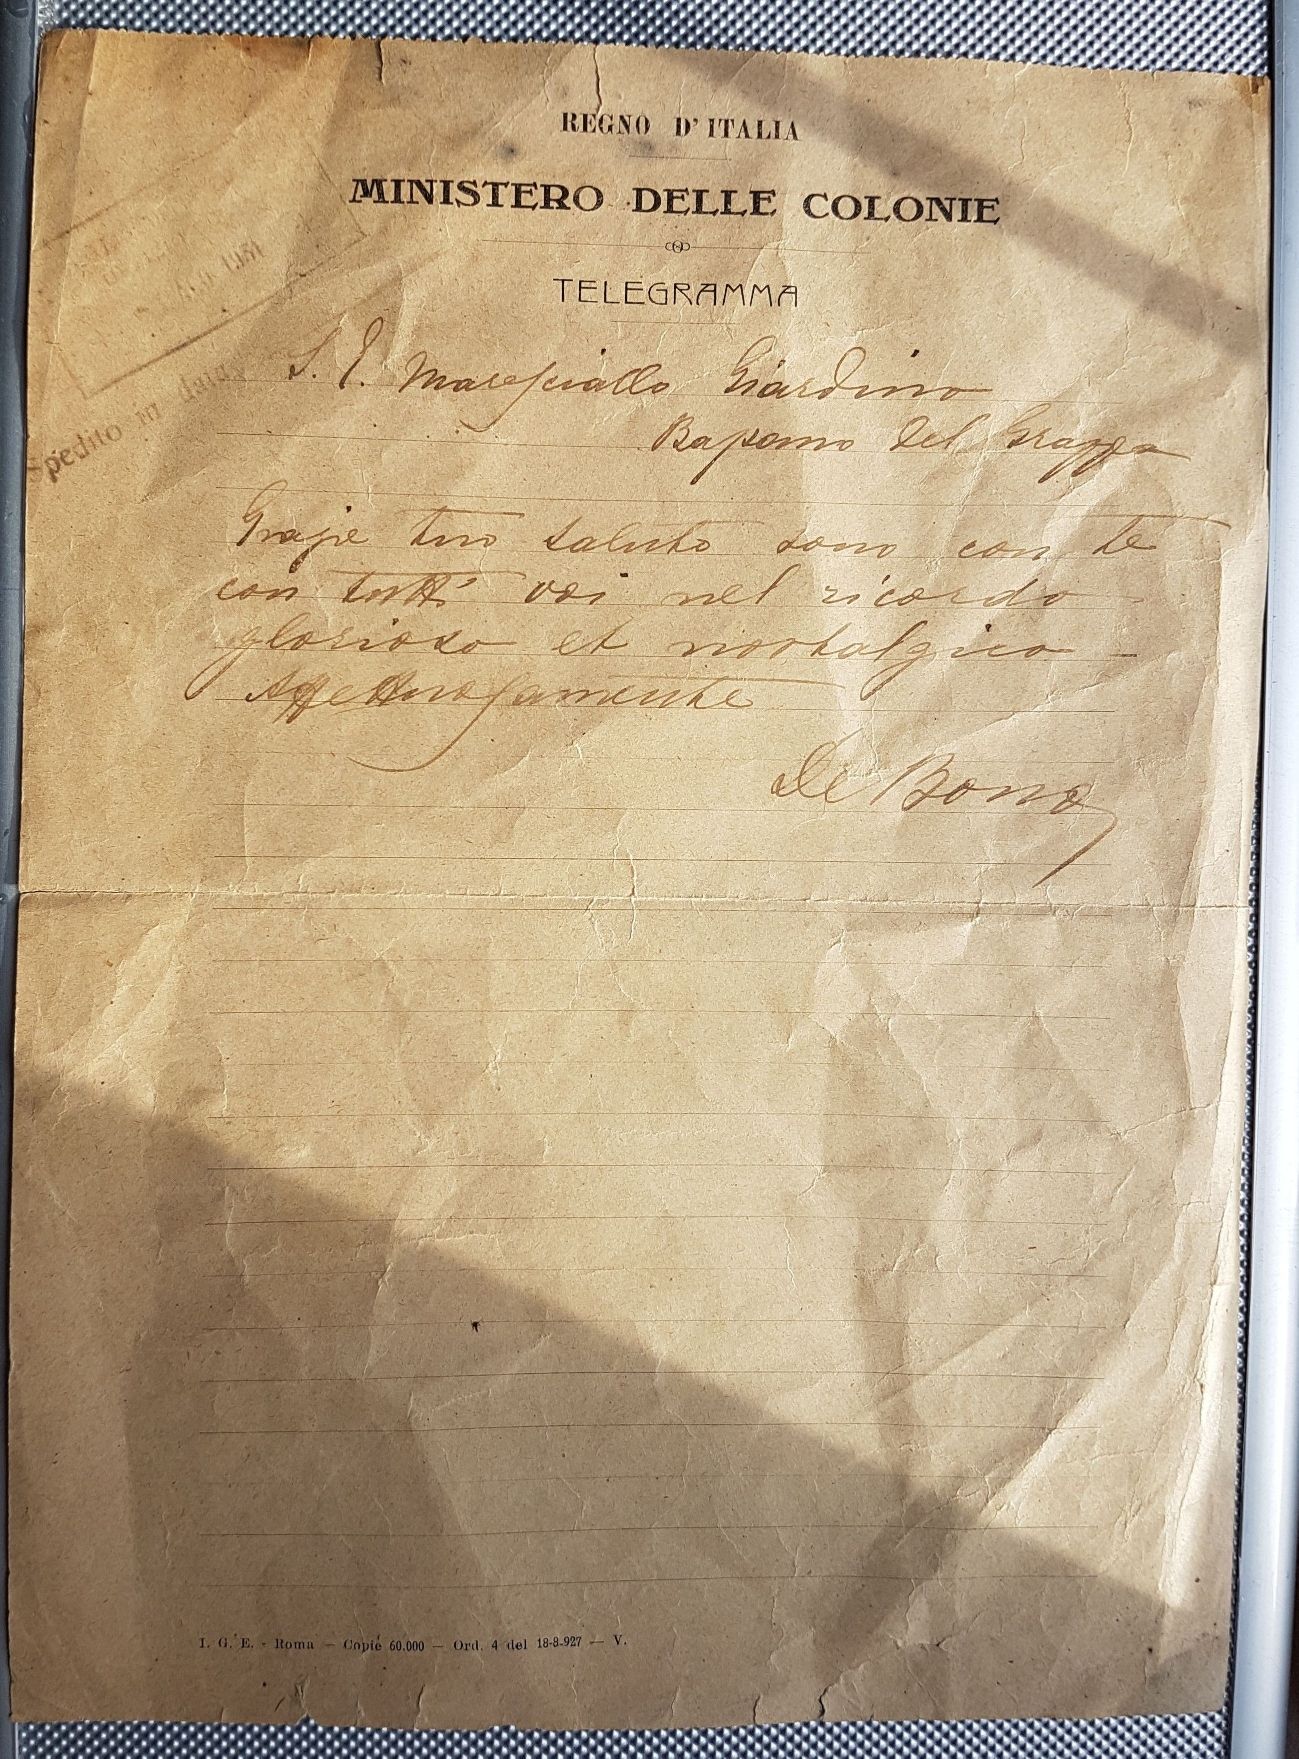 REGNO D'ITALIA
MINISTERO DELLE COLONIE
TELEGRAMMA
1931
Spedito in data
S. E. Maresciallo Giardino
del Grappa
Grazie tuo saluto sono con te
con tutti voi nel ricordo
glorioso et nostalgico -
Affettuosamente
De Bono
I. G. E. - Roma - Copie 60.000 - Ord. 4 del 18-8-927 - V.